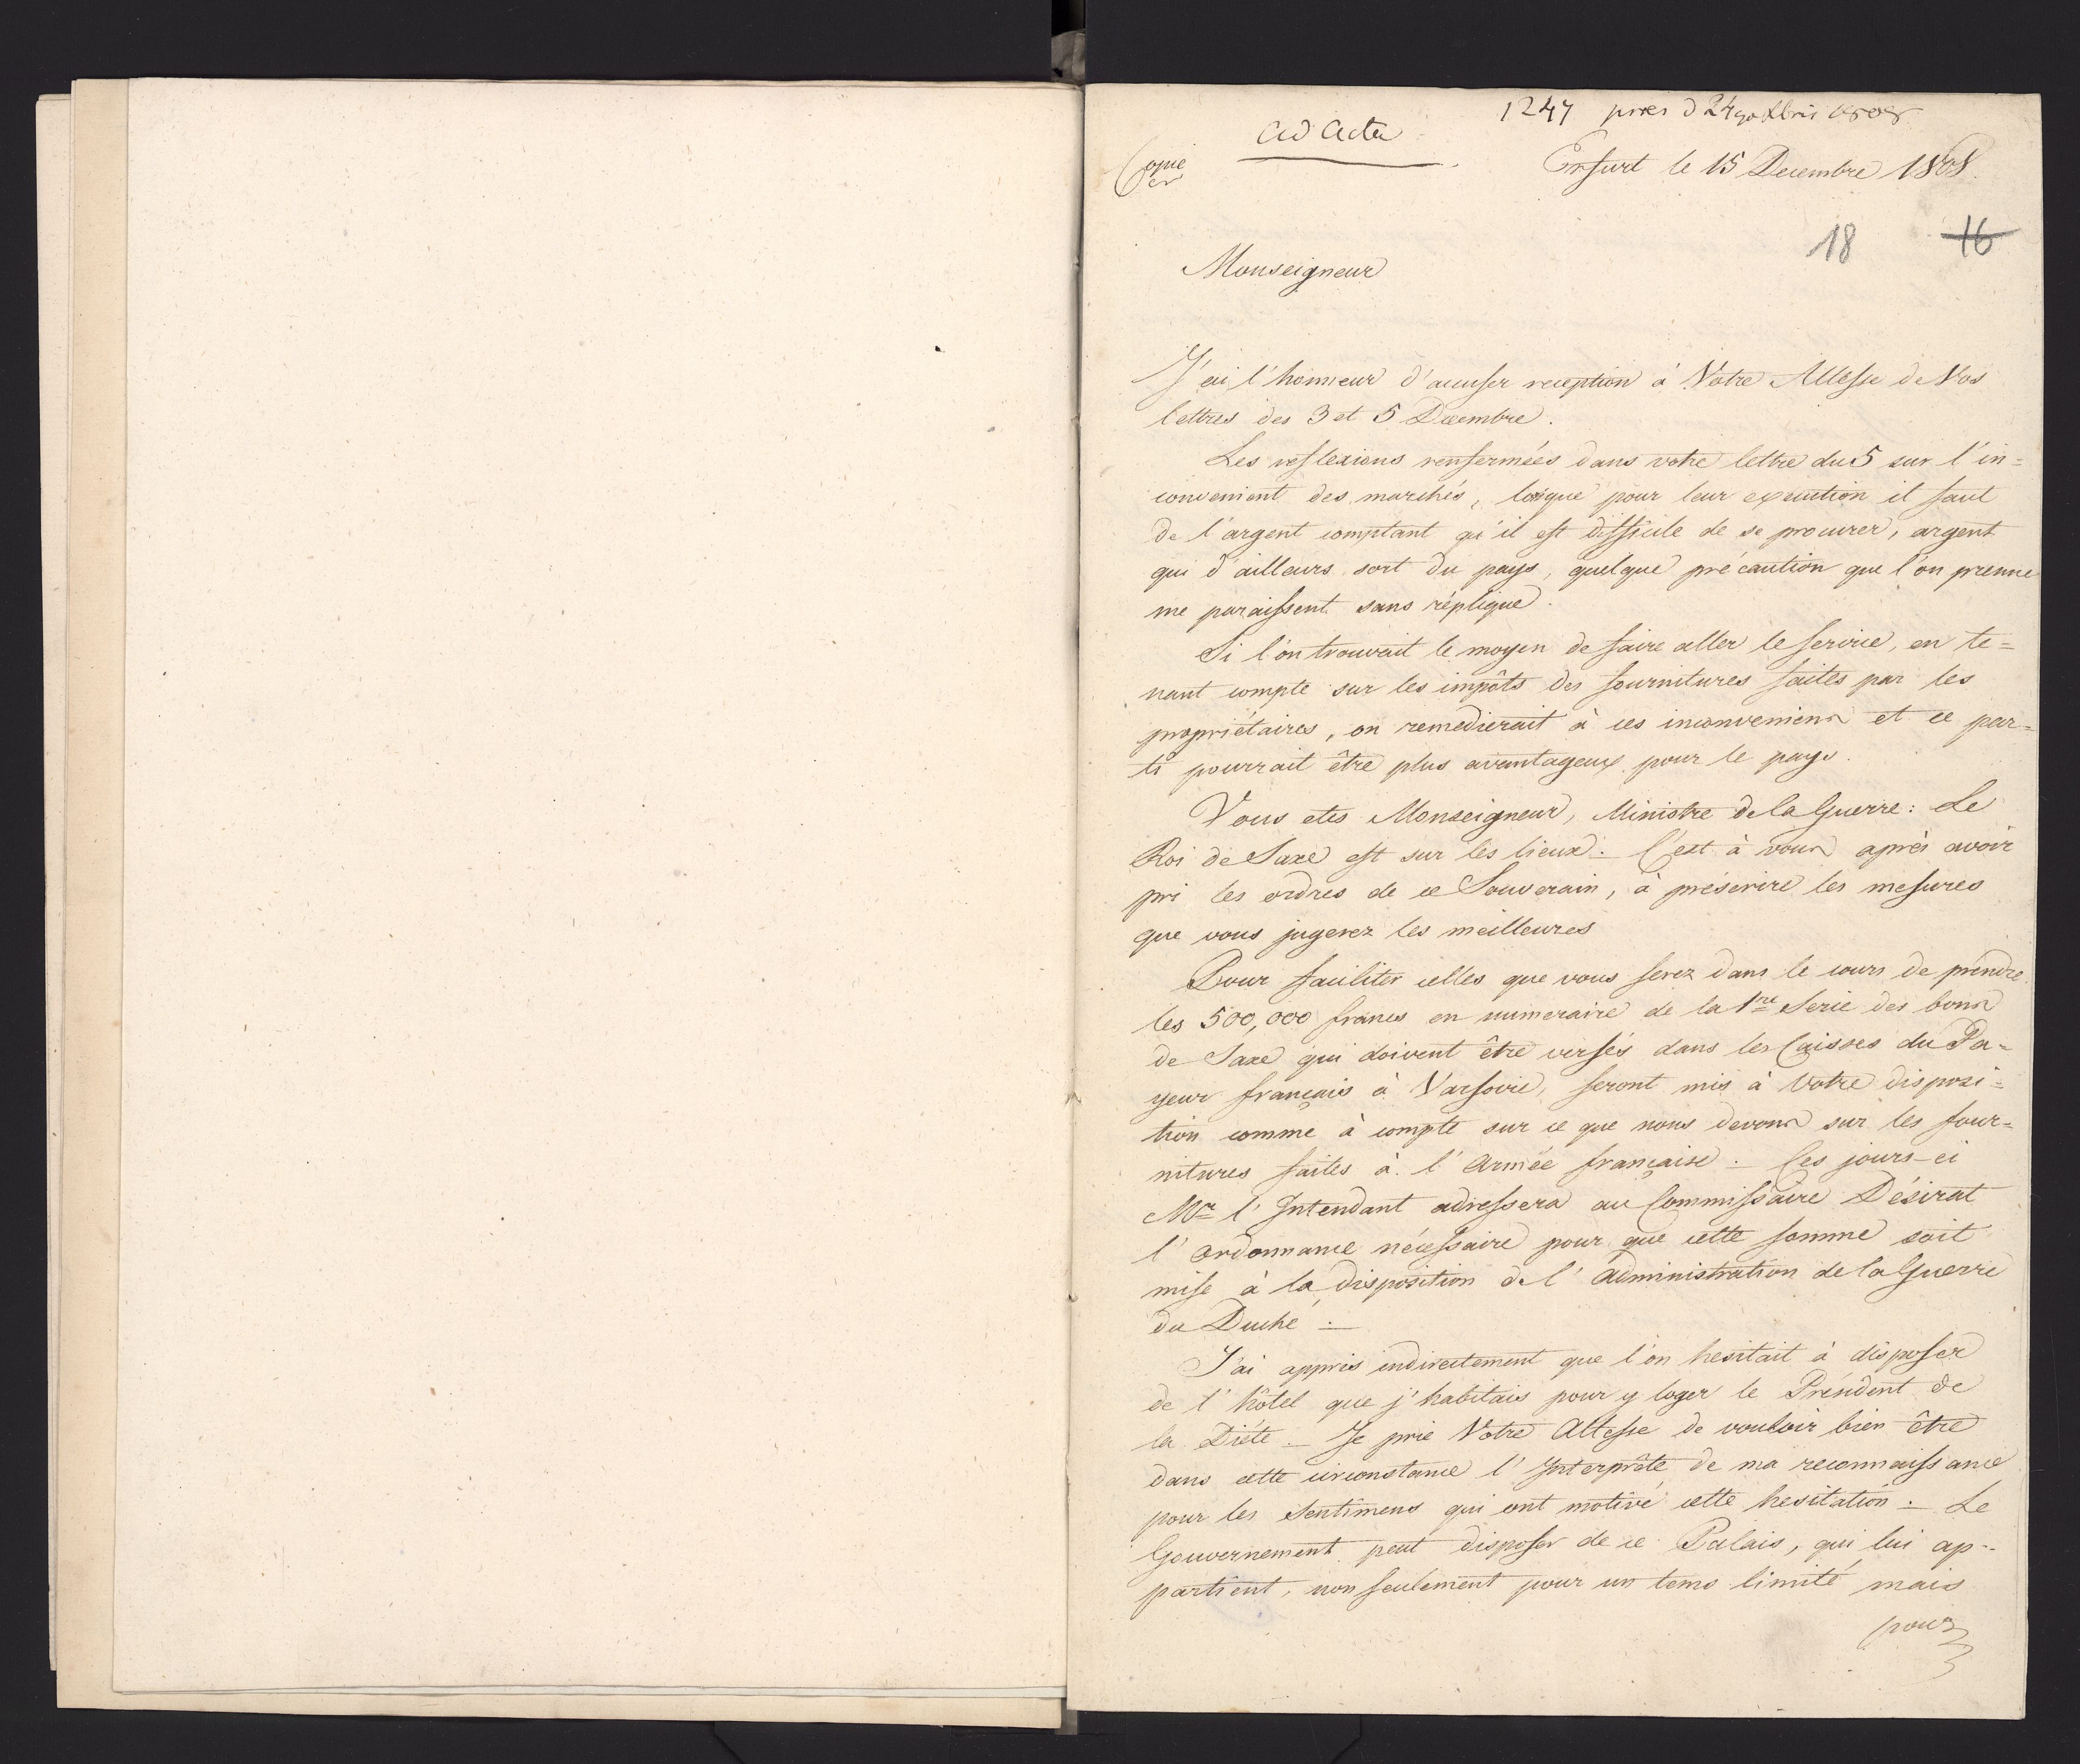 1247 pres d 24go Xbris 1808
Ad Acta
Copie
Erfurt le 15 Decembre 1808.
18 16
Monseigneur
J'ai l'honneur d'accuser reception à Votre Altesse de Vos
lettres des 3 et 5 Decembre.
Les reflexions renfermées dans votre lettre du 5 sur l'in=
convenient des marchés, losque pour leur execution il faut
de l'argent comptant qu'il est difficile de se procurer, argent
qui d'ailleurs sort du pays, quelque précaution que l'on prenne
me paraissent sans réplique.
Si l'on trouvait le moyen de faire aller le service, en te=
nant compte sur les impôts des fournitures faites par les
propriétaires, on remedierait à ces inconveniens et ce par=
ti pourrait être plus avantageux pour le pays.
Vous etes Monseigneur, Ministre de la Guerre: Le
Roi de Saxe est sur les lieux. C'est à vous après avoir
pri les ordres de ce Souverain, à préscrire les mesures
que vous jugerez les meilleures
Pour faciliter celles que vous serez dans le cours de prendre
les 500,000 francs en numeraire de la 1re Serie des bons
de Saxe qui doivent être versés dans les Caisses du Pa=
yeur français à Varsovie, seront mis à Votre disposi=
tion comme à compte sur ce que nous devons sur les four=
nitures faites à l'Armée française. Ces jours-ci
Mr l'Intendant adressera au Commissaire Désirat
l'ordonnance nécessaire pour que cette somme soit
mise à la disposition de l'Administration de la Guerre
du Duché.
J'ai appris indirectement que l'on hesitait à disposer
de l'hôtel que j'habitais pour y loger le Président de
la Diéte. Je prie Votre Altesse de vouloir bien être
dans cette circonstance l'Interprête de ma reconnaissance
pour les Sentimens qui ont motivé cette hesitation. Le
Gouvernement peut disposer de ce Palais, qui lui ap=
partient, non seulement pour un tems limité mais
pour